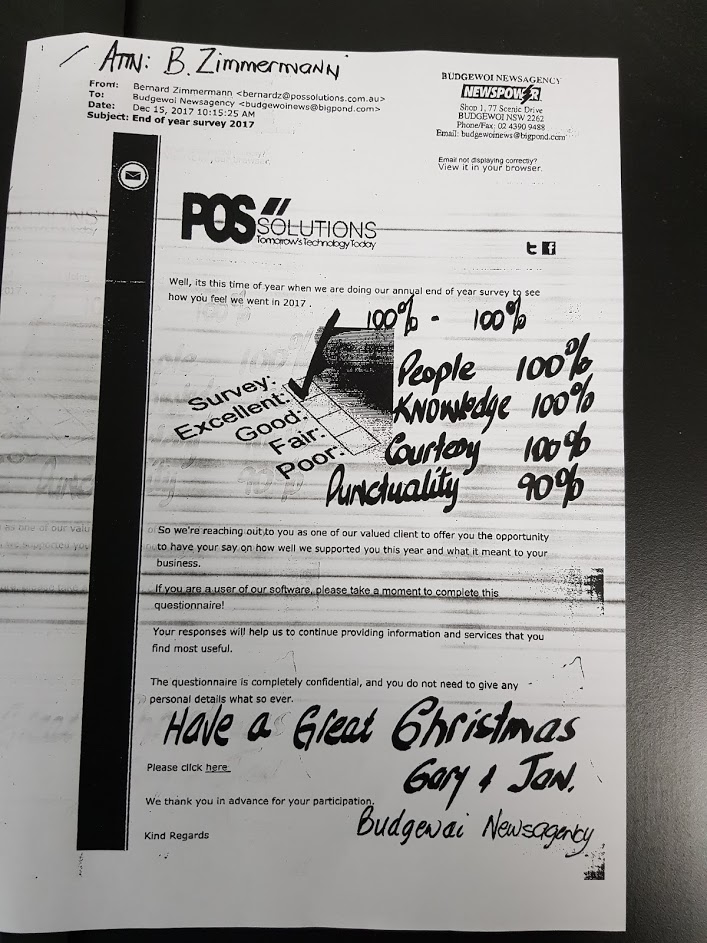 / ATTN: B. Zimmermann
From: Bernard Zimmermann <bernardz@possolutions.com.au>
To: Budgewoi Newsagency <budgewoinews@bigpond.com>
Date: Dec 15, 2017 10:15:25 AM
Subject: End of year survey 2017
BUDGEWOI NEWSAGENCY
NEWSPOWER
Shop 1, 77 Scenic Drive
BUDGEWOI NSW 2262
Phone/Fax: 02 4390 9488
Email: budgewoinews@bigpond.com
Email not displaying correctly?
View it in your browser.
POS SOLUTIONS
Tomorrow's Technology Today
t f
Well, its this time of year when we are doing our annual end of year survey to see
how you feel we went in 2017 .
100% - 100%
Survey:
Excellent:
Good:
Fair:
Poor:
People 100%
Knowledge 100%
Courtesy 100%
Punctuality 90%
So we're reaching out to you as one of our valued client to offer you the opportunity
to have your say on how well we supported you this year and what it meant to your
business.
If you are a user of our software, please take a moment to complete this
questionnaire!
Your responses will help us to continue providing information and services that you
find most useful.
The questionnaire is completely confidential, and you do not need to give any
personal details what so ever.
Have a Great Christmas
Please click here
Gary & Jan.
We thank you in advance for your participation.
Budgewai Newsagency
Kind Regards